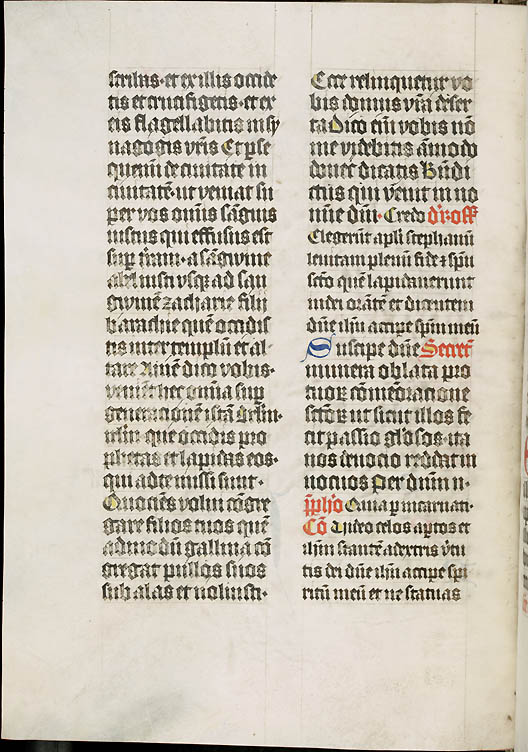 scribas · et ex illis occide
tis et crucifigetis · et ex
eis flagellabitis in sy
nagogis vr̄is Et p̄se
quemī de civitate in
civitatē · ut veniat su
per vos omīs sāguis
iustus qui effusus est
sup t̄ram · a sāgwine
abel iusti vsq̨ ad san
gwinē zacharie filii
barachie quē occidis
tis inter templū et al
tare Amē dico vobis ·
venıēt hec om̄ia sup
generationē istā Jerl̄m ·
irl̄m · que occidis pro
phetas et lapidas eos ·
qui ad te missi sunt ·
Quociēs volui cōgre
gare filios tuos quē
admodū gallina cō
gregat pullos suos
sub alas et noluisti ·
Ecce relinquetur vo
bis domus vr̄a deser
ta Dico em̄ vobis nō
me videbitis āmodo
donec dicatis Bn̄di
ctus qui venit in no
mīe dn̄i · Credo
Elegerūt apl̄i stephanū
levitam plenū fide ⁊ sp̄u
sc̄to quē lapidaverunt
iudei orātē et dicentem
dn̄e ih̄u accipe sp̄m meū
Suscipe dn̄e Secret̄
munera oblata pro
tuoꝝ cōmēoratione
sc̄toꝝ ut sicut illos fe
cit passio gl̄osos · ita
nos devocio reddat in
nocuos Per dn̄m n̄ ·
Quia p incarnati ·
Cō Video celos aꝑtos et
ih̄m stantē a dextris v̄tu
tis dei dn̄e ih̄u accipe spi
ritū meū et ne statuas